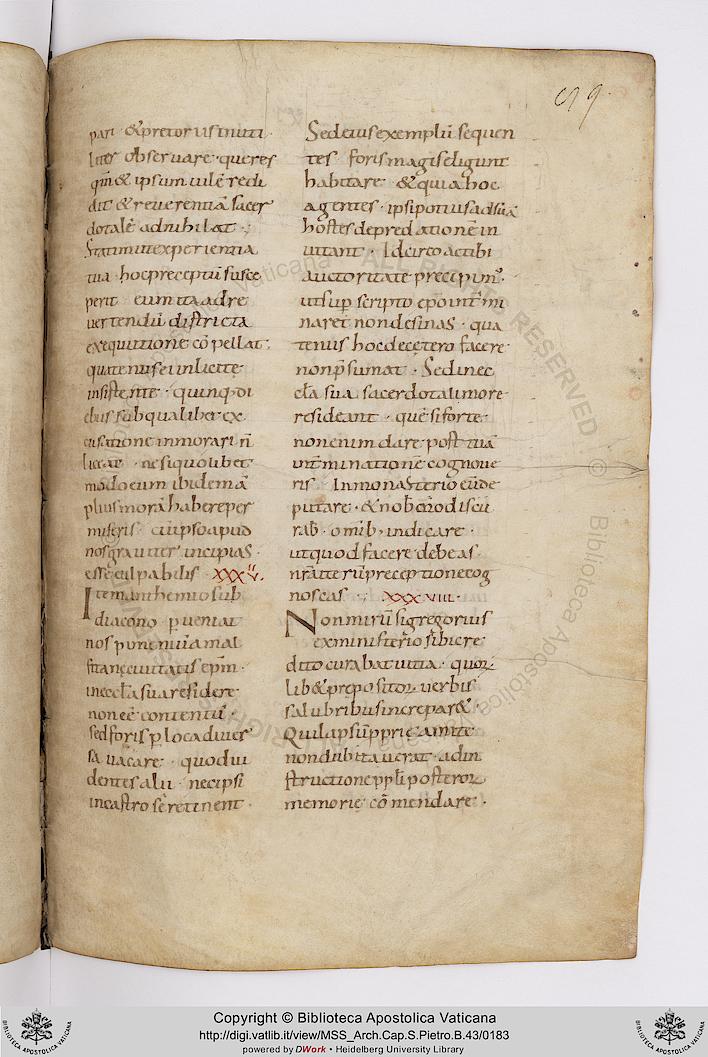 99.
pati · & pretoris inuti
liter obseruare queres
qm̄ & ipsum uile redi
dit & reuerentiā sacer
dotalē adnihilat ·;
Statim ut experientia
tua · hoc preceptū susce
perit eum ita adre
uertendū districta
exequutione cōpellat ·
quatenus ei inlicite
insistente · quinq; di
ebus sub qualibet ex
cusatione inmorari n̄
liceat · ne si quolibet
modo eum ibidem ā
plius morā habere per
miseris · cū ipso apud
nos grauiter incipias ·
esse culpabilis · XXXV.
Item anthemio sub
diacono peruenit ad
nos pimenium amal
fitanę ciuitatis epm̄ ·
in ecclā sua residere
non eē contentū ·
sed foris p loca diuer
sa uacare · quod ui
dentes alii · nec ipsi
in castro se retinent ·
Sed eius exemplū sequen
tes foris magis eligunt
habitare & quia hoc
agentes · ipsi potius ad suā
hostes depredationē in
uitant · Idcirco ac tibi
auctoritate precipim᾿ ·
ut sup̄ scripto ep̄o int̄mi
nare t̄ non desinas · qua
tenus hoc de cetero facere
non p̄sumat · Sed in ec
clā sua sacerdotali more
resideant · quē si forte
non emendare post tuā
int̄minationē cognoue
ris · In monasterio eūde
putare · & nob̄ om̄odis cu
rab̄ · omib; indicare ·
ut quod facere debeas
nr̄a iterū preceptione cog
noscas · XXXVIII ·
Non mirū si gregorius
ex ministerio sibi cre
dito curabat uitia · quoꝝ
lib& prepositoꝝ uerbis
salubribus increpar& ·
Qui lapsū pprię a mite
non dubitauerat · ad in
structionē ppli posteroꝝ
memorię cōmendare ·
Copyright © Biblioteca Apostolica Vaticana
http://digi.vatlib.it/view/MSS_Arch.Cap.S.Pietro.B.43/0183
powered by DWork • Heidelberg University Library